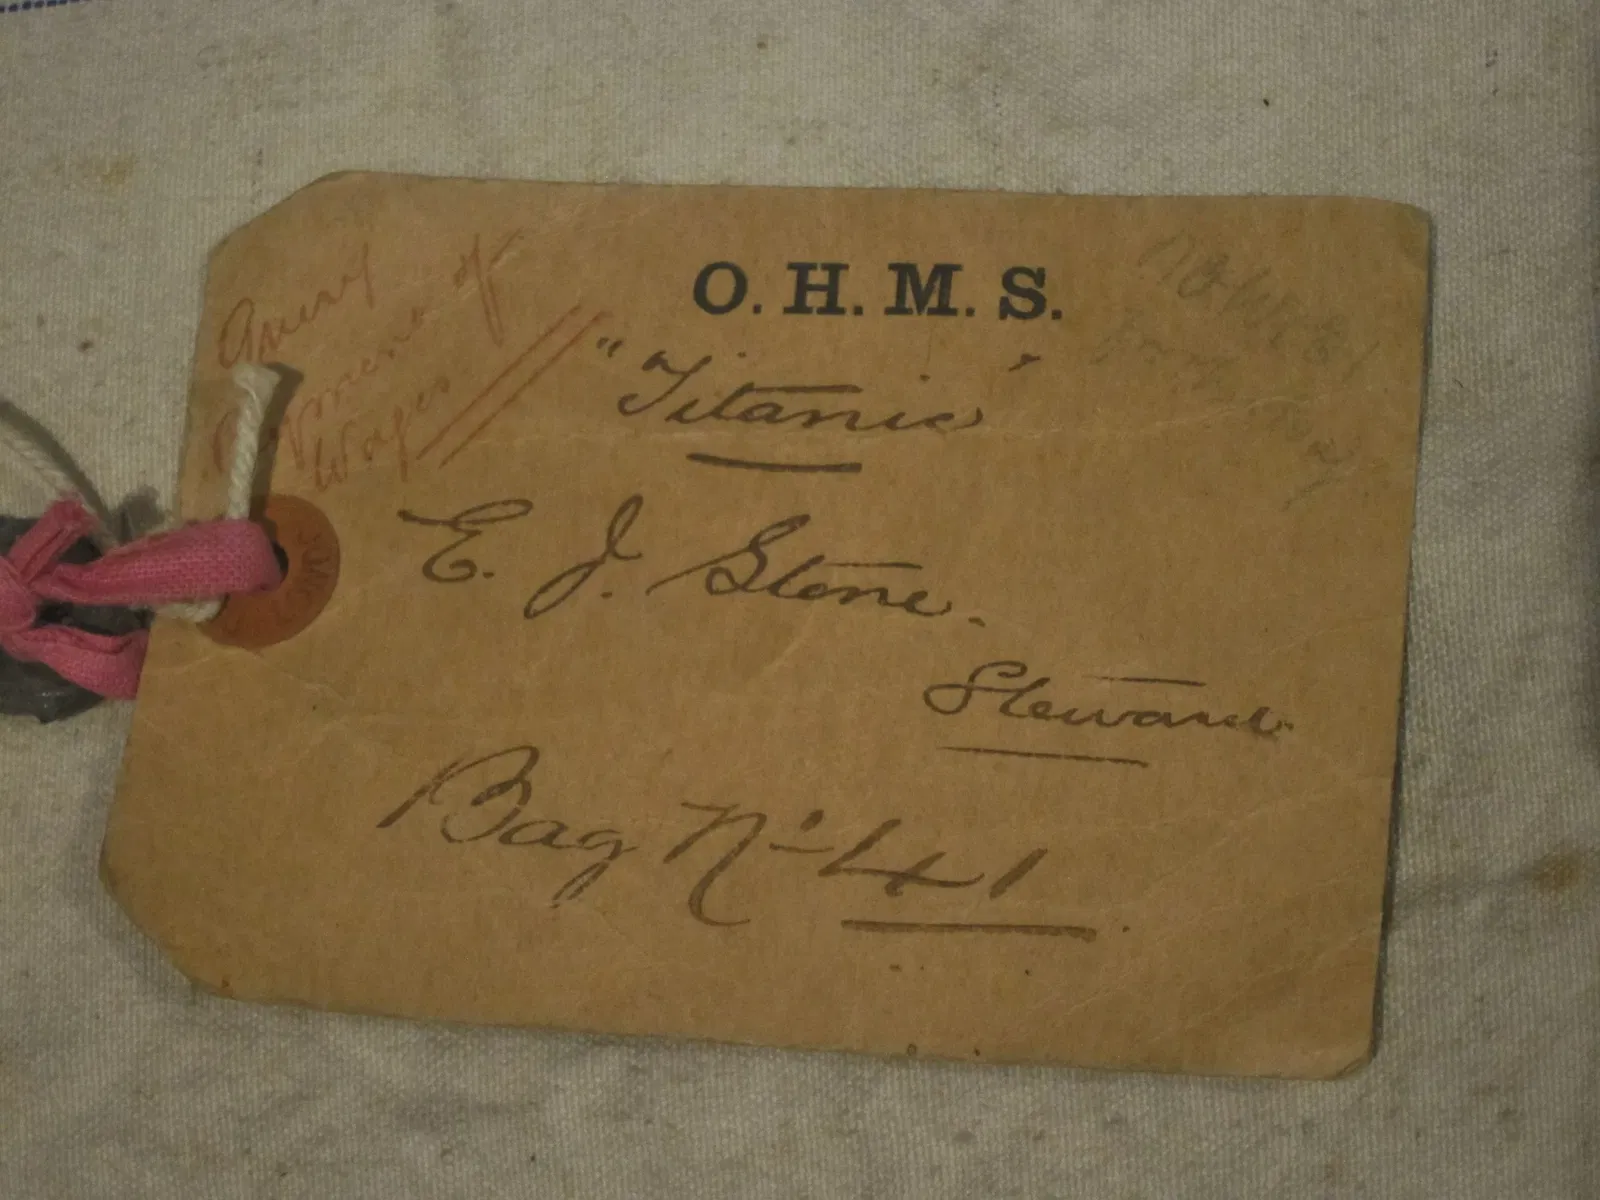 Payment of
Wages
O. H. M. S.
"Titanic"
E. J. Stone.
Steward.
Bag No. 41.